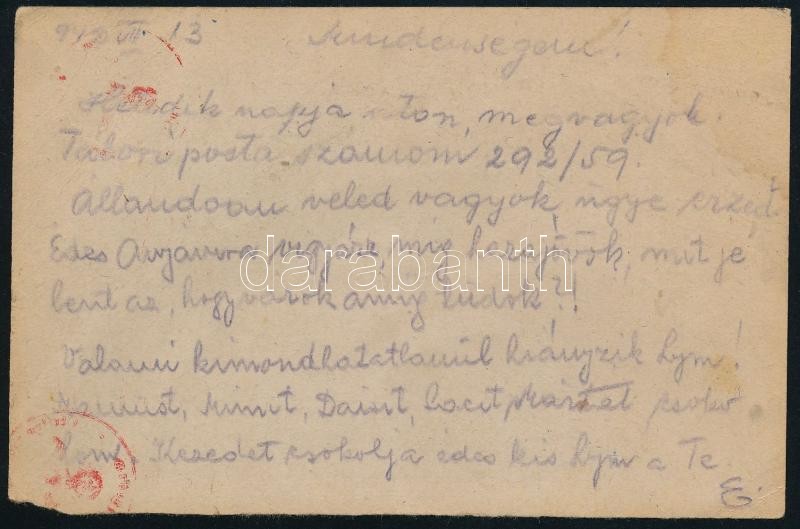 942 VII 13 Mindenségem!
Hetedik napja úton, megvagyok.
Tábori posta számom 292/59.
Állandóan veled vagyok, ugye érzed.
Édes Anyámra vigyázz, míg hazajövök, mit je
lent az, hogy várok annyi tudok?!
Valami kimondhatatlanúl hiányzik Lym!
Mimit, Daisit, Lacit, csoko
lom. Kezedet csokolja édes kis Lym a Te
E.
darabanth